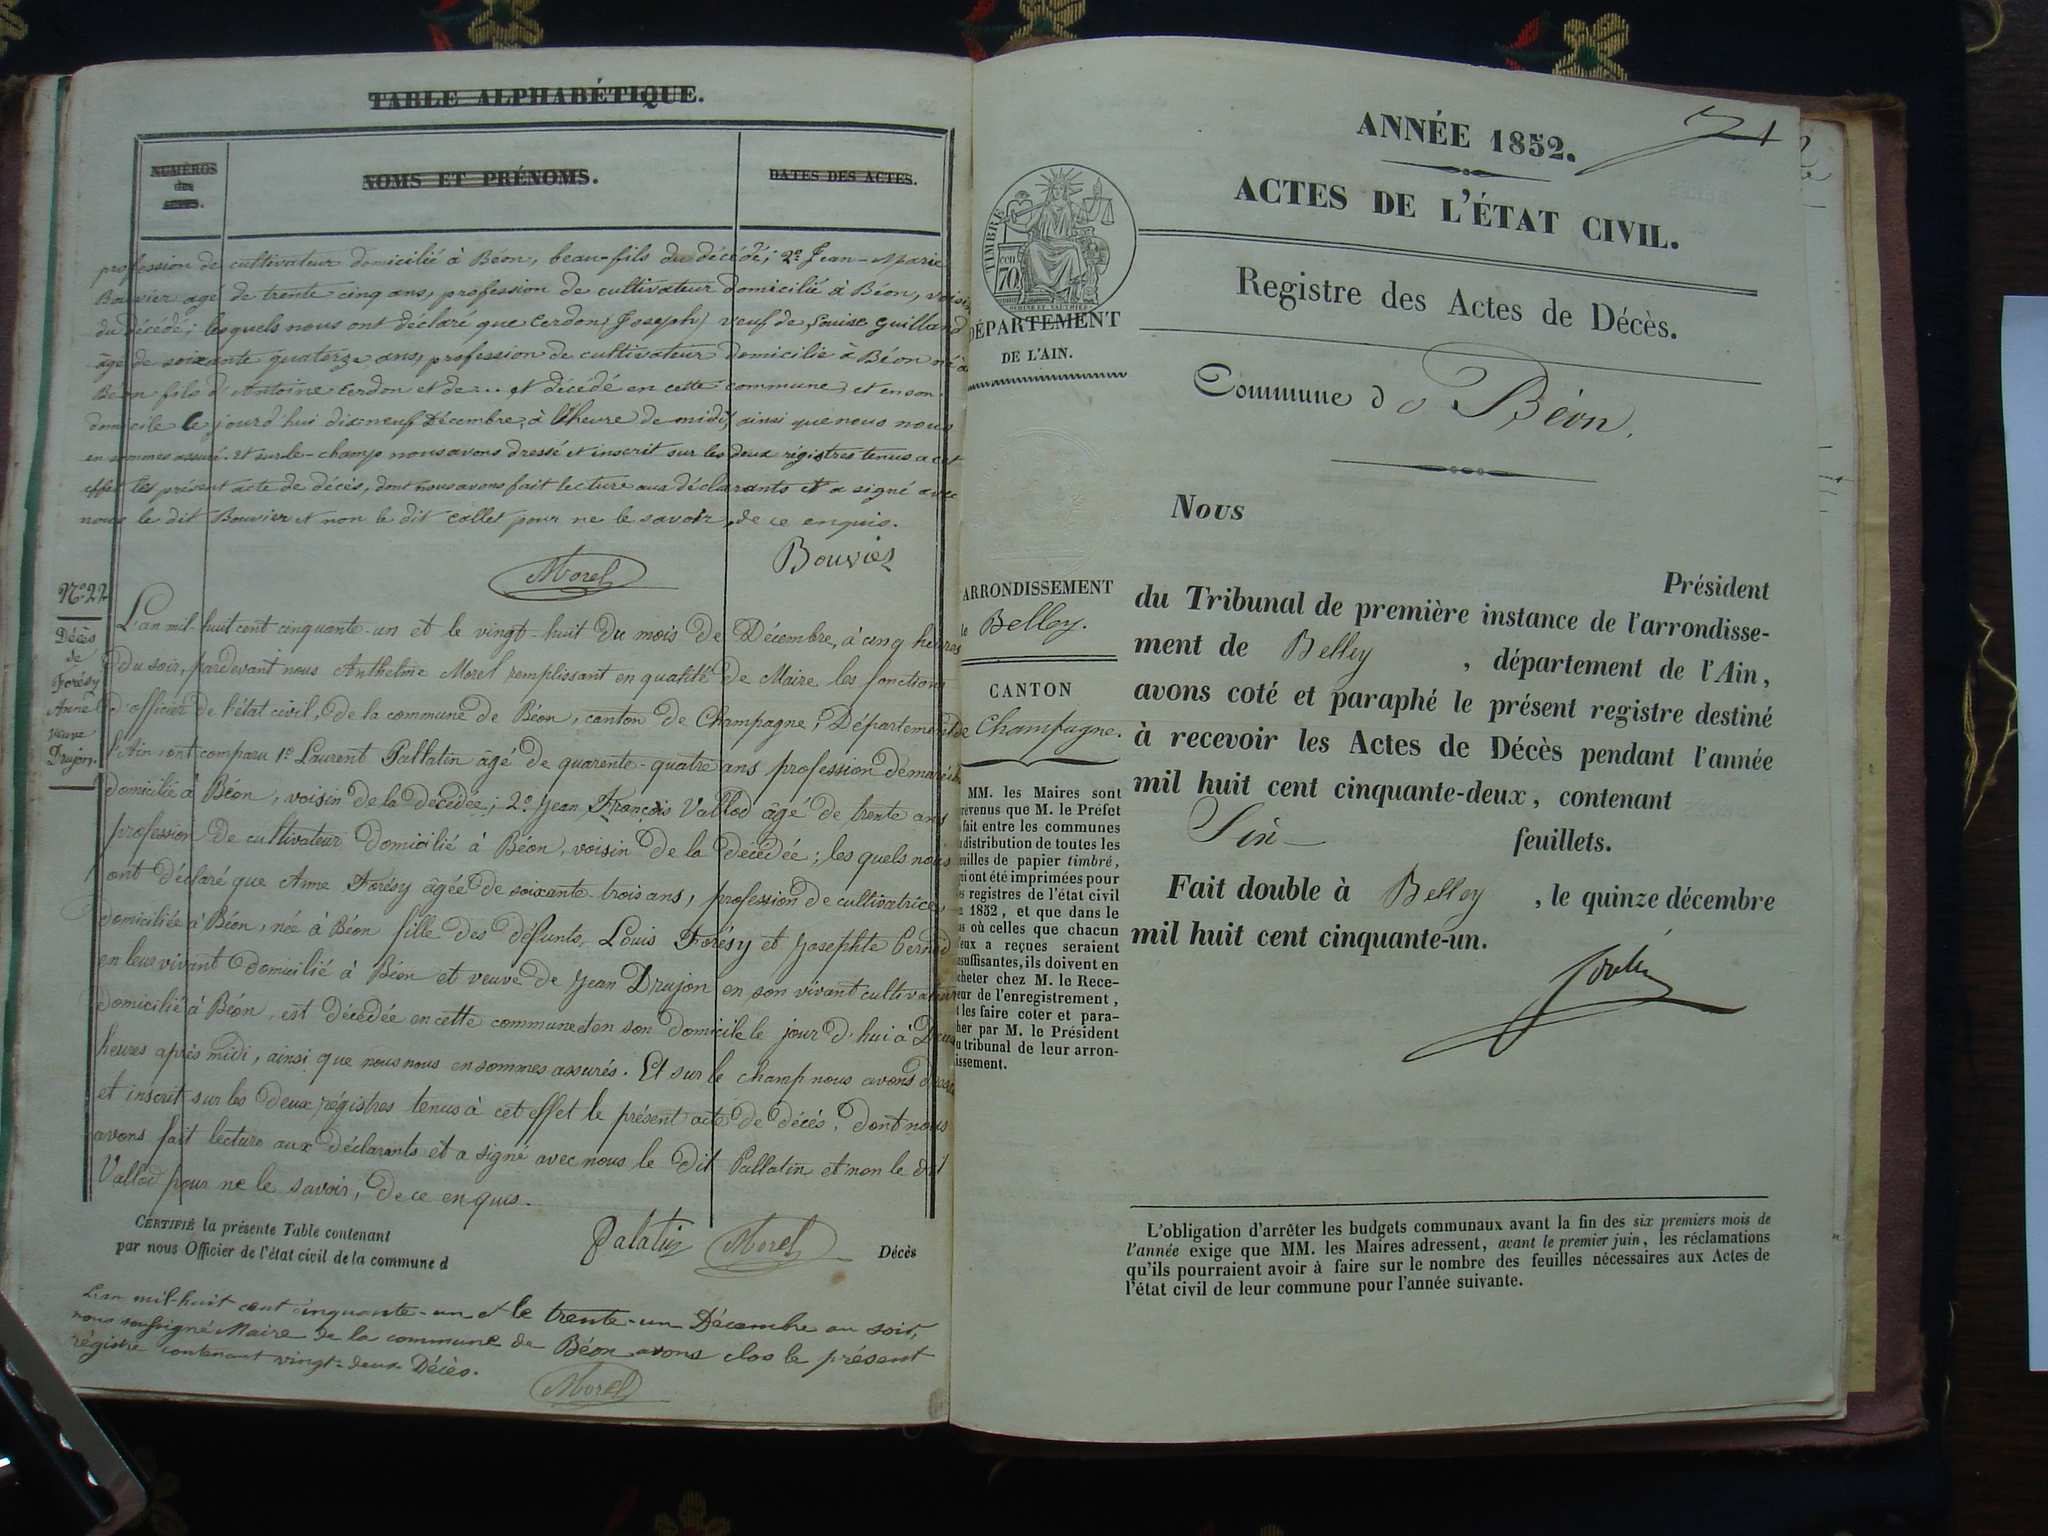 TABLE ALPHABÉTIQUE.
NUMÉROS
des
NOMS ET PRÉNOMS.
DATES DES ACTES.
profession de cultivateur domicilié à Béon, beau-fils du décédé; 2º Jean-Marie
Bouvier agé de trente cinq ans, profession de cultivateur domicilié à Béon, voisin
du décédé; lesquels nous ont déclaré que Cerdon (Joseph) veuf de Louise Guilland
âgé de soixante quatorze ans, profession de cultivateur domicilié à Béon né à
Béon fils d'Antoine Cerdon et de ... et décédé en cette commune et en son
domicile le jourd'hui dix-neuf Décembre, à l'heure de midi, ainsi que nous nous
en sommes assuré. Et sur-le-champ nous avons dressé et inscrit sur les deux régistres tenus a cet
effet les présent acte de décès, dont nous avons fait lecture aux déclarants et a signé avec
nous le dit Bouvier et non le dit Collet pour ne le savoir, de ce enquis.
Morel
Bouvier
Nº 22
Décès
de
Forésy
Anne
veuve
Drujon.
L'an mil-huit cent cinquante-un et le vingt-huit du mois de Décembre, à cinq heures
du soir, pardevant nous Anthelme Morel remplissant en qualité de Maire les fonctions
d'officier de l'état civil, de la commune de Béon, canton de Champagne, Département de
l'Ain, ont comparu 1º Laurent Pallatin âgé de quarente-quatre ans profession de
domicilié à Béon, voisin de la décédée; 2º Jean François Vallod âgé de trente ans
profession de cultivateur domicilié à Béon, voisin de la décédée; les quels nous
ont déclaré que Anne Forésy âgée de soixante-trois ans, profession de cultivatrice,
domiciliée à Béon, née à Béon fille des défunts Louis Forésy et Josephte Bernod
en leur vivant domicilié à Béon et veuve de Jean Drujon en son vivant cultivateur
domicilié à Béon, est décédée en cette commune et en son domicile le jour d'hui à Deux
heures après midi, ainsi que nous nous en sommes assurés. Et sur le champ nous avons dressé
et inscrit sur les deux régistres tenus à cet effet le présent acte de décès, dont nous
avons fait lecture aux déclarants et a signé avec nous le dit Pallatin et non le dit
Vallod pour ne le savoir, de ce enquis.
CERTIFIÉ la présente Table contenant
par nous Officier de l'état civil de la commune d
Palatin
Morel
Décès
L'an mil-huit cent cinquante-un et le trente-un Décembre au soir,
nous soussigné Maire de la commune de Béon avons clos le présent
régistre contenant vingt-deux Décès.
Morel
71
ANNÉE 1852.
ACTES DE L'ÉTAT CIVIL.
TIMBRE
70
Registre des Actes de Décès.
DÉPARTEMENT
DE L'AIN.
Commune de Béon.
Nous
Président
du Tribunal de première instance de l'arrondisse-
ment de Belley, département de l'Ain,
avons coté et paraphé le présent registre destiné
à recevoir les Actes de Décès pendant l'année
mil huit cent cinquante-deux, contenant
Six feuillets.
Fait double à Belley, le quinze décembre
mil huit cent cinquante-un.
ARRONDISSEMENT
de Belley.
CANTON
de Champagne.
MM. les Maires sont
prévenus que M. le Préfet
fait entre les communes
distribution de toutes les
feuilles de papier timbré,
qui ont été imprimées pour
les registres de l'état civil
1852, et que dans le
cas où celles que chacun
d'eux a reçues seraient
insuffisantes, ils doivent en
acheter chez M. le Rece-
veur de l'enregistrement,
et les faire coter et para-
pher par M. le Président
du tribunal de leur arron-
dissement.
L'obligation d'arrêter les budgets communaux avant la fin des six premiers mois de
l'année exige que MM. les Maires adressent, avant le premier juin, les réclamations
qu'ils pourraient avoir à faire sur le nombre des feuilles nécessaires aux Actes de
l'état civil de leur commune pour l'année suivante.